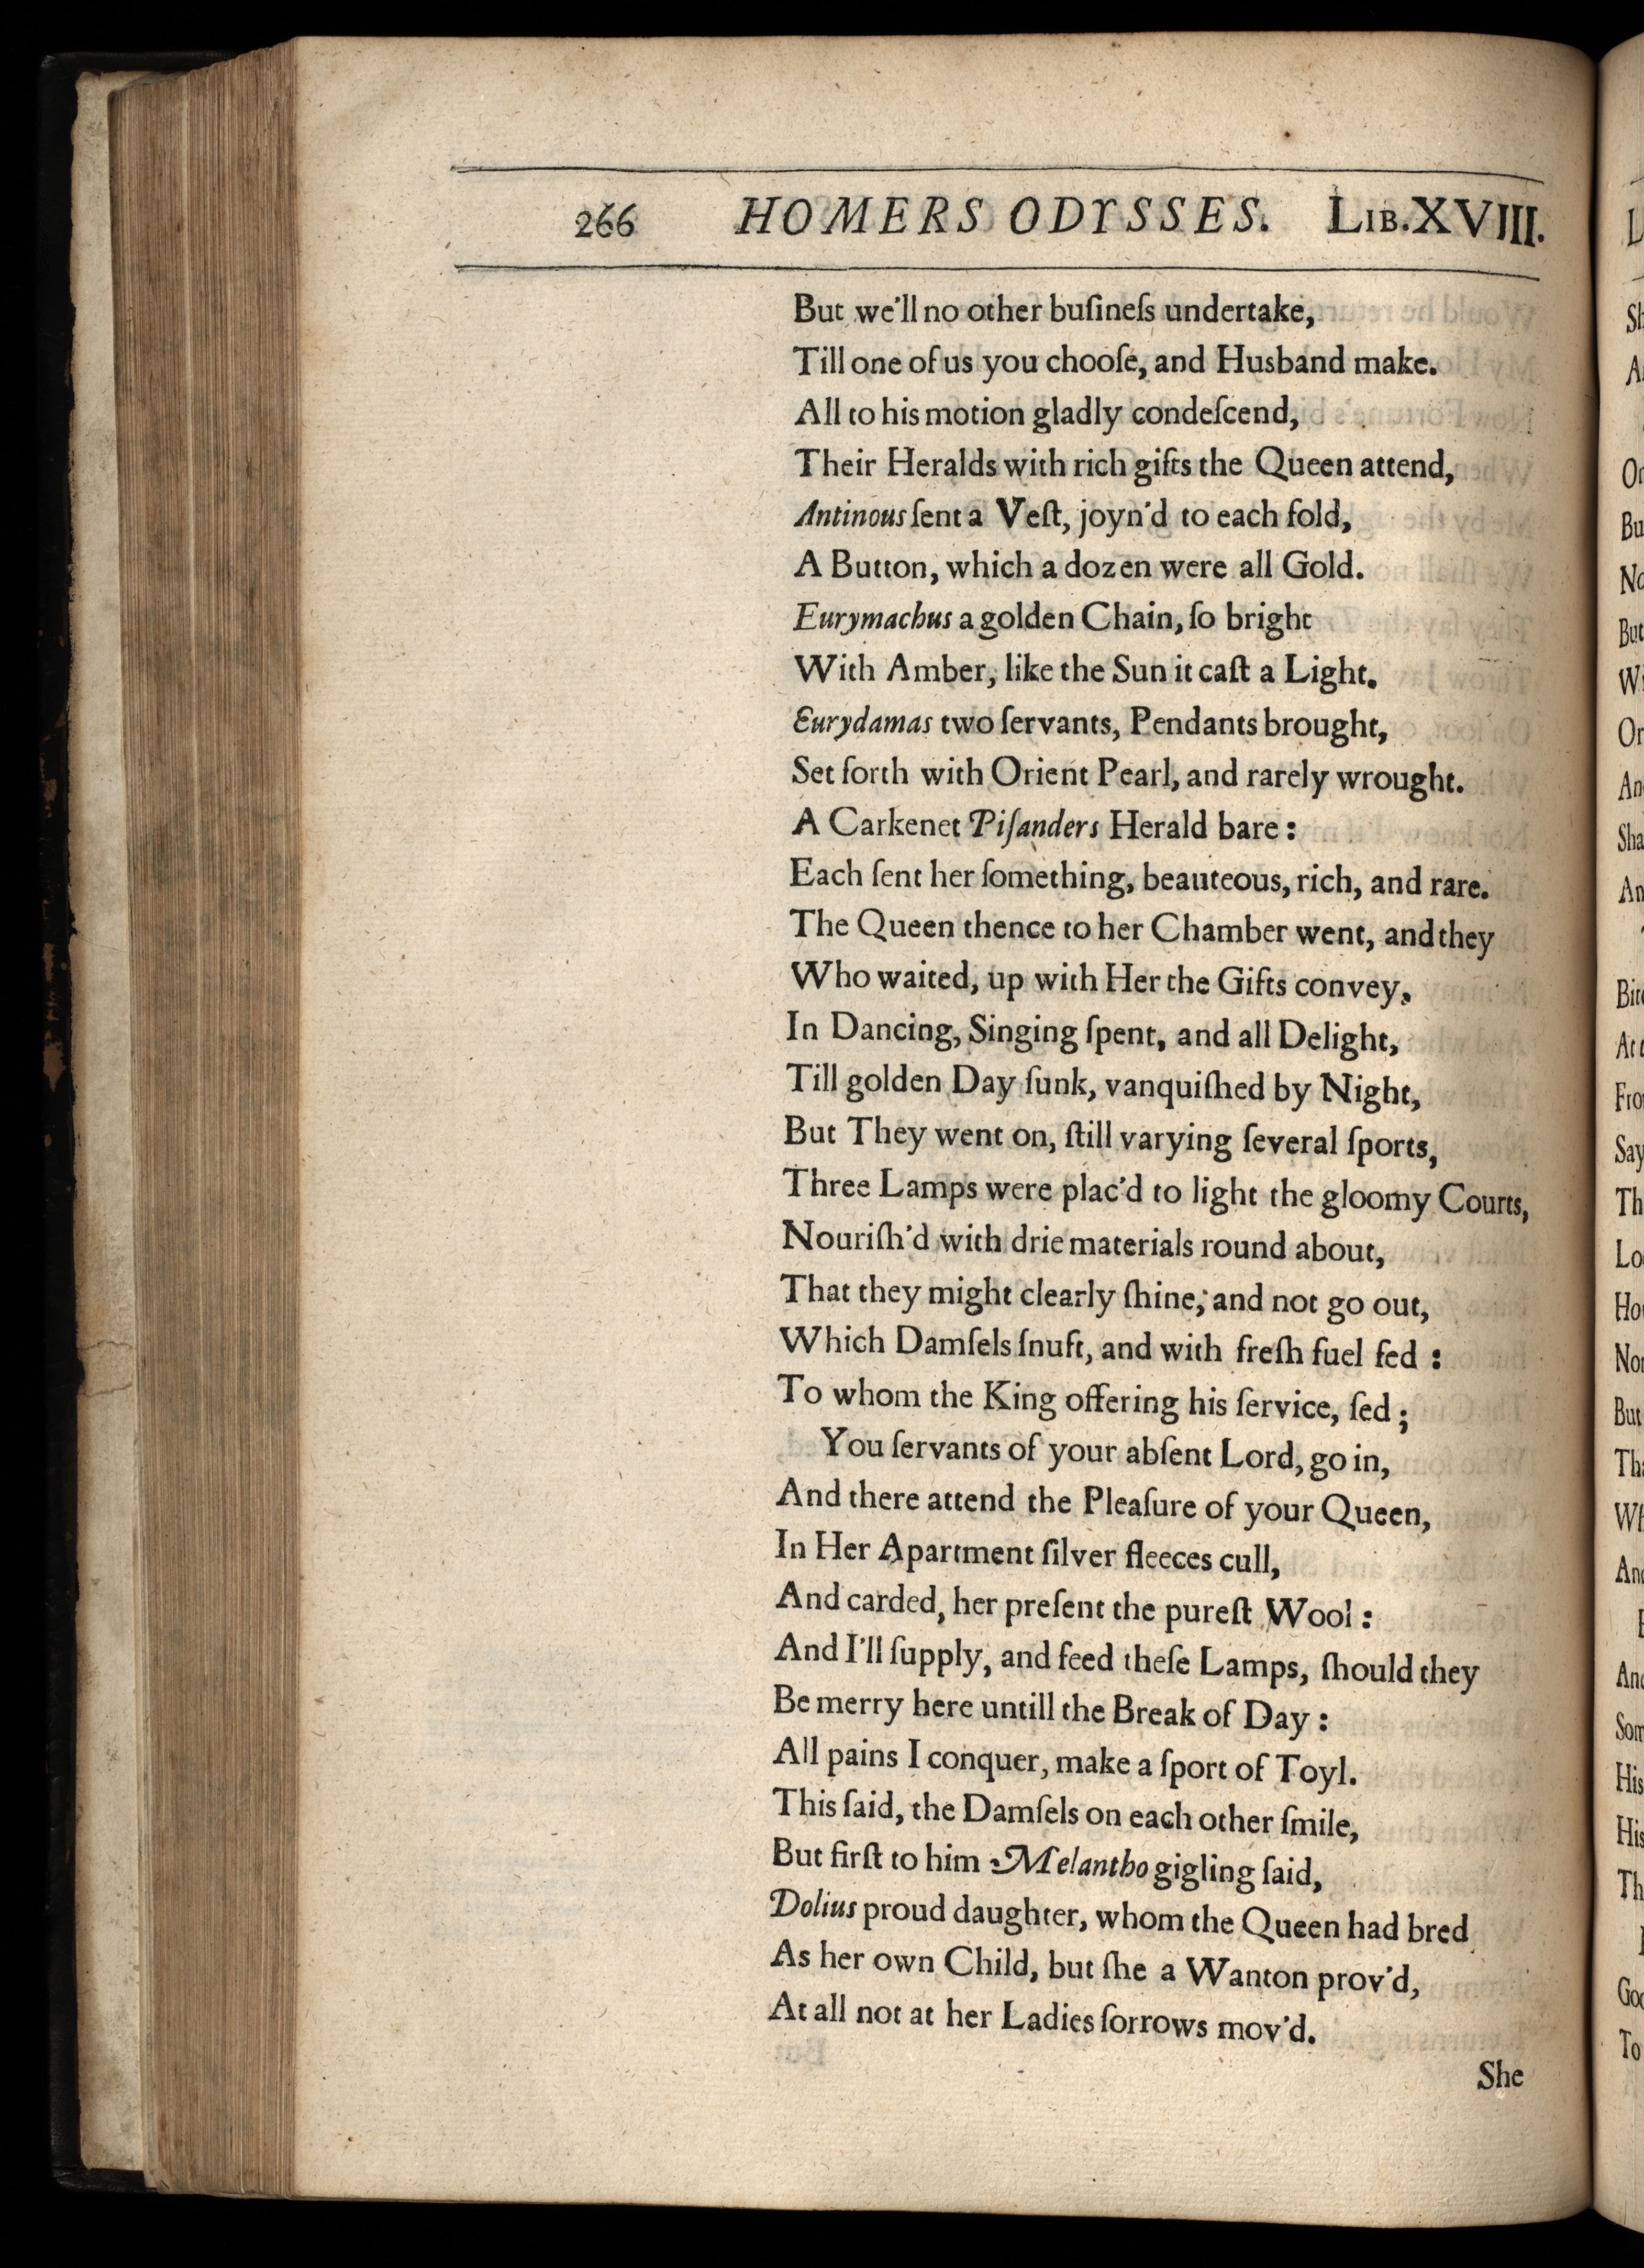 266 HOMERS ODYSSES. LIB.XVIII.
But we'll no other buſineſs undertake,
Till one of us you chooſe, and Husband make.
All to his motion gladly condeſcend,
Their Heralds with rich gifts the Queen attend,
Antinous ſent a Veſt, joyn'd to each fold,
A Button, which a dozen were all Gold.
Eurymachus a golden Chain, ſo bright
With Amber, like the Sun it caſt a Light.
Eurydamas two ſervants, Pendants brought,
Set forth with Orient Pearl, and rarely wrought.
A Carkenet Piſanders Herald bare:
Each ſent her ſomething, beauteous, rich, and rare.
The Queen thence to her Chamber went, and they
Who waited, up with Her the Gifts convey,
In Dancing, Singing ſpent, and all Delight,
Till golden Day ſunk, vanquiſhed by Night,
But They went on, ſtill varying ſeveral ſports,
Three Lamps were plac'd to light the gloomy Courts,
Nouriſh'd with drie materials round about,
That they might clearly ſhine, and not go out,
Which Damſels ſnuft, and with freſh fuel fed:
To whom the King offering his ſervice, ſed;
You ſervants of your abſent Lord, go in,
And there attend the Pleaſure of your Queen,
In Her Apartment ſilver fleeces cull,
And carded, her preſent the pureſt Wool:
And I'll ſupply, and feed theſe Lamps, ſhould they
Be merry here untill the Break of Day:
All pains I conquer, make a ſport of Toyl.
This ſaid, the Damſels on each other ſmile,
But firſt to him Melantho gigling ſaid,
Dolius proud daughter, whom the Queen had bred
As her own Child, but ſhe a Wanton prov'd,
At all not at her Ladies ſorrows mov'd.
She